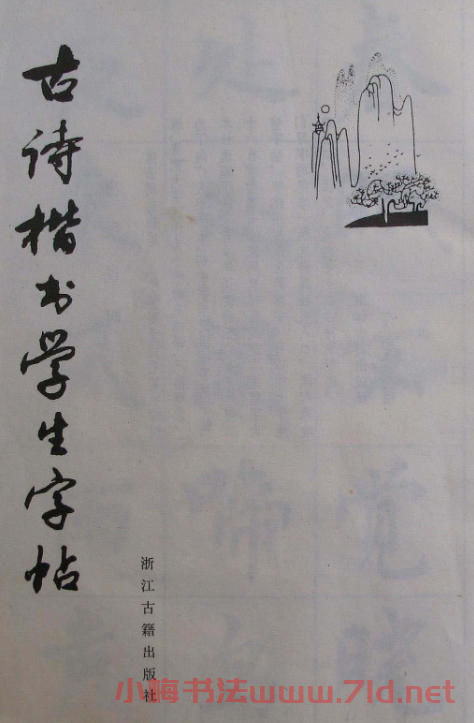 古诗楷书学生字帖
浙江古籍出版社
小梅书法www.7ld.net